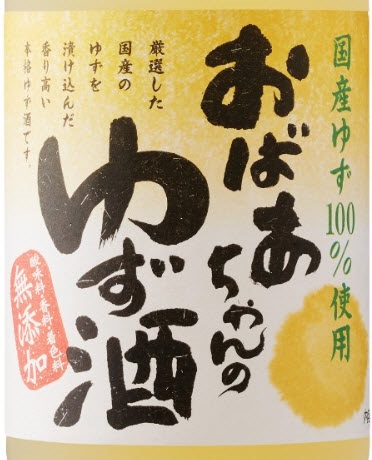 国産ゆず100%使用
おばあちゃんの
ゆず酒
厳選した
国産の
ゆずを
漬け込んだ
香り高い
本格ゆず酒です。
酸味料・香料・着色料
無添加